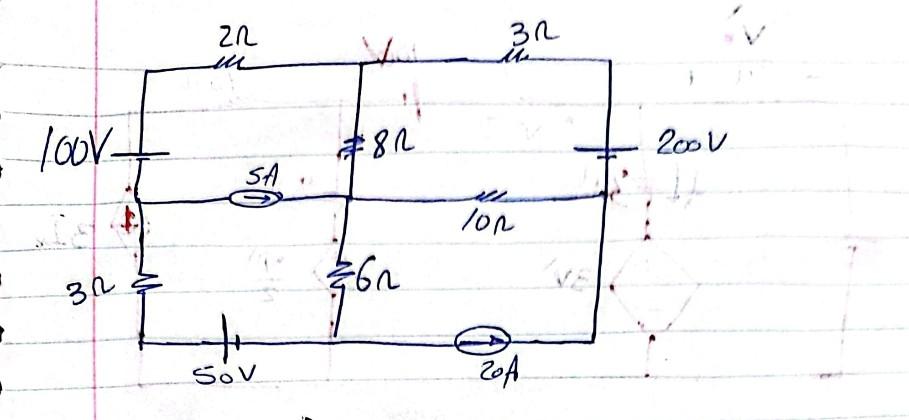 2Ω 3Ω
V
100V 8Ω 200V
5A
10Ω
3Ω 6Ω
50V 20A